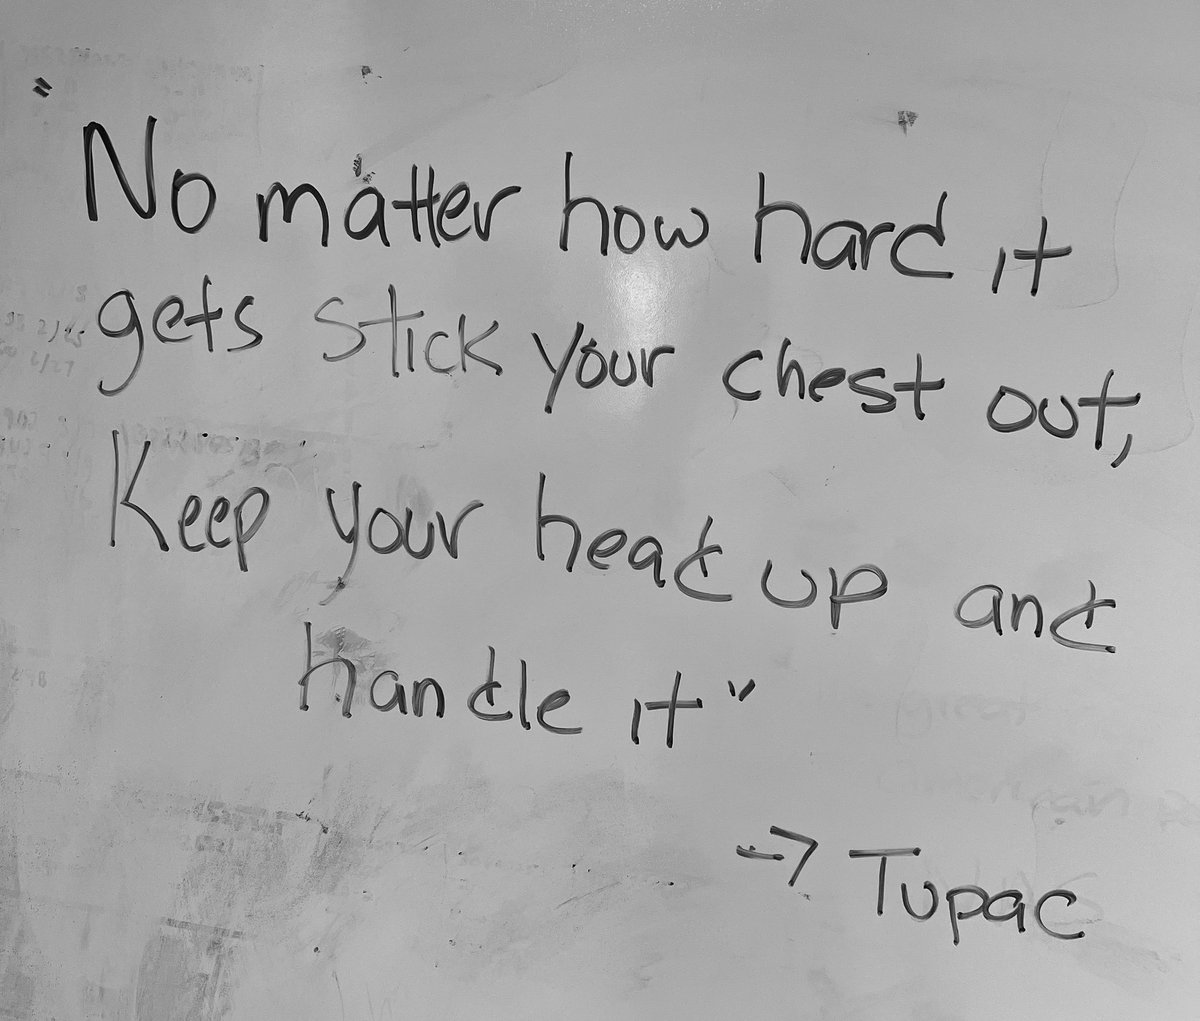 "No matter how hard it
gets stick your chest out,
Keep your head up and
handle it"
→ Tupac